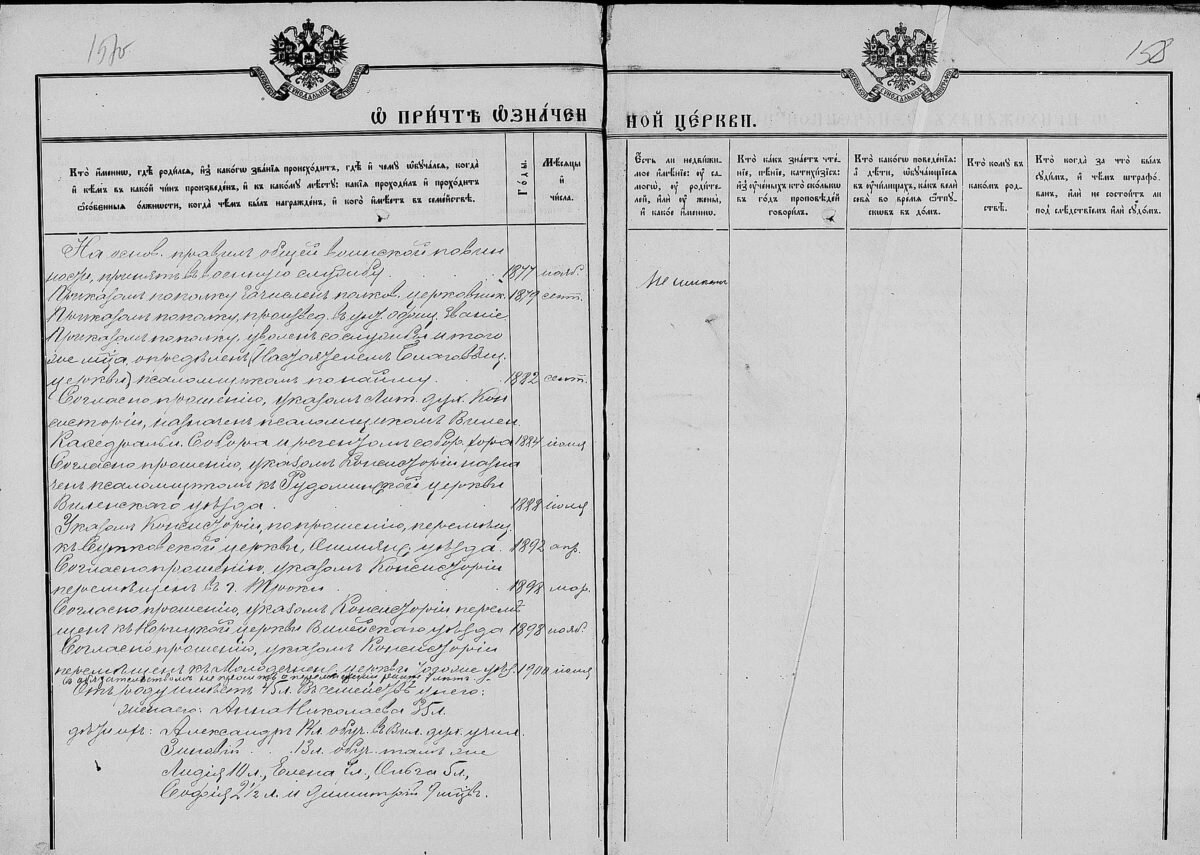 157об.
158
Ѡ ПРИ́ЧТѢ Ѡ҆ЗНА́ЧЕННОЙ ЦЕ́РКВИ.
Кто̀ и҆́менно, гдѣ̀ роди́лся, и҆з̾ какѡ́гѡ зва́нїѧ происхо́дитъ, гдѣ̀ и҆ чемꙋ̀ ѡ҆бꙋча́лсѧ, когда̀
и҆ кѣ́мъ въ какі́й чи́нъ произведе́нъ, и҆ къ како́мꙋ мѣ́стꙋ: каки̑ѧ проходи́лъ и҆ прохо́дитъ
ѻ҆со́бенныѧ до́лжности, когда̀ чѣ́мъ бы́лъ награжде́нъ, и҆ кого̀ и҆мѣ́етъ въ семе́йствѣ.
Го́ды.
Мѣ́сѧцы
и҆
чи́сла.
Е҆́сть ли недви́жи-
мое и҆мѣ́нїе: ᲂу҆ са-
могѡ̀, ᲂу҆ роди́те-
лей, и҆лѝ ᲂу҆ жены̀,
и҆ како́е и҆́менно.
Кто̀ ка́къ зна́етъ чте́-
нїе, пѣ́нїе, катихи́зисъ:
и҆з̾ ᲂу҆че́ныхъ кто̀ ско́лькѡ
въ го́дъ про́повѣдей
говори́лъ.
Кто̀ какѡ́гѡ поведе́нїѧ:
и҆ дѣ́ти, ѡ҆бꙋча́ющїесѧ
въ ᲂу҆чи́лищахъ, ка́къ велѝ
себѧ̀ во вре́мѧ ѿпꙋ-
скѡвъ въ до́мъ.
Кто̀ комꙋ̀ въ
како́мъ род-
ствѣ̀.
Кто̀ когда̀ за что̀ бы́лъ
сꙋди́мъ, и҆ чѣ́мъ штрафо́-
ванъ, и҆лѝ не состои́тъ ли
под̾ слѣ́дствїемъ и҆лѝ сꙋдо́мъ.
На основ. правилъ общей воинской повин
ности, принятъ въ военную службу . . . 1877 нояб.
Приказомъ по полку зачисленъ полков. церковник. 1879 сент.
Приказомъ по полку, произвед. въ унт. офиц. званіе
Приказомъ по полку, уволенъ со службы и того
же м-ца, опредѣленъ (Настоятелемъ Благовѣщ.
церкви) псаломщикомъ по найму. . . 1882 сент.
Согласно прошенію, указомъ Лит. дух. Кон
систоріи, назначенъ псаломщикомъ Вилен.
Каѳедральн. Собора и регентомъ собор. хора 1884 іюня
Согласно прошенію, указомъ Консисторіи назна
ченъ псаломщикомъ къ Рудоминской церкви
Виленскаго уѣзда . . . 1888 іюля
Указомъ Консисторіи, по прошенію, перемѣщ
къ церкви, Ошмян. уѣзда. 1892 апр.
Согласно прошенію, указомъ Консисторіи
перемѣщенъ въ г. Троки . . . 1898 мар.
Согласно прошенію, указомъ Консисторіи перемѣ
щенъ къ Норицкой церкви Вилейскаго уѣзда 1898 нояб.
Согласно прошенію, указомъ Консисторіи
перемѣщенъ къ Молодечнен. церкви тогоже уѣз. 1900 іюня
Съ обязательствомъ не просить о перемѣщеніи ранѣе лѣтъ.
Отъ роду имѣетъ 45 л. Въ семействѣ у него:
жена его: Анна Николаева 35 л.
дѣти ихъ: Александръ 14 л. обуч. въ Вил. дух. учил.
Зиновій . . 13 л. обуч. тамъ же
Лидія, 10 л., Елена л., Ольга 5 л.,
Софія, 2½ л. и Димитрій 9 мѣсц.
Не имѣетъ